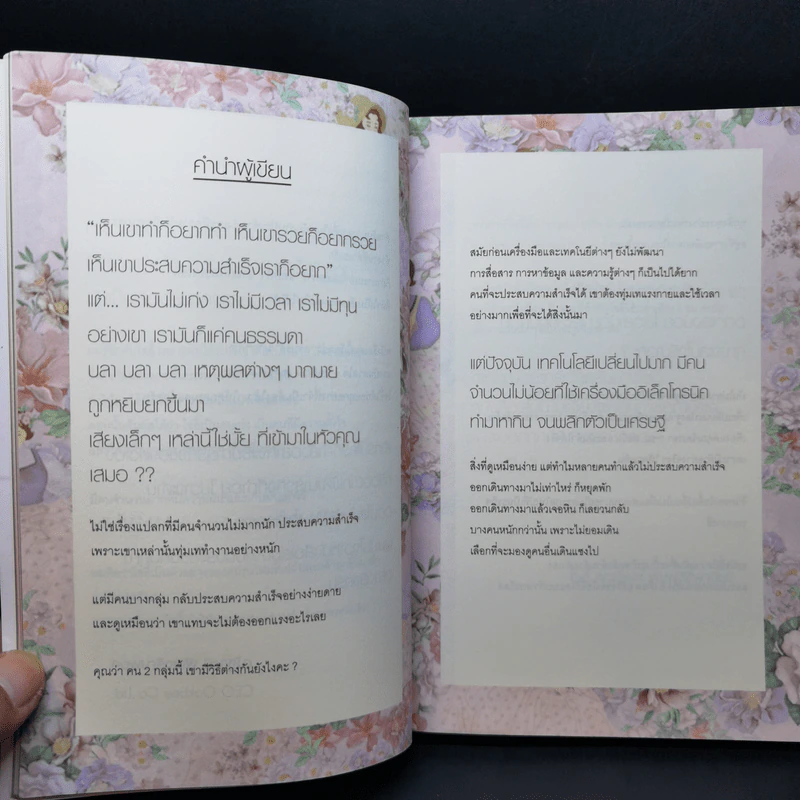 คำนำผู้เขียน
“เห็นเขาทำก็อยากทำ เห็นเขารวยก็อยากรวย
เห็นเขาประสบความสำเร็จเราก็อยาก”
แต่... เรามันไม่เก่ง เราไม่มีเวลา เราไม่มีทุน
อย่างเขา เรามันก็แค่คนธรรมดา
บลา บลา บลา เหตุผลต่างๆ มากมาย
ถูกหยิบยกขึ้นมา
เสียงเล็กๆ เหล่านี้ใช่มั้ย ที่เข้ามาในหัวคุณ
เสมอ ??
ไม่ใช่เรื่องแปลกที่มีคนจำนวนไม่มากนัก ประสบความสำเร็จ
เพราะเขาเหล่านั้นทุ่มเททำงานอย่างหนัก
แต่มีคนบางกลุ่ม กลับประสบความสำเร็จอย่างง่ายดาย
และดูเหมือนว่า เขาแทบจะไม่ต้องออกแรงอะไรเลย
คุณว่า คน 2 กลุ่มนี้ เขามีวิธีต่างกันยังไงคะ ?
สมัยก่อนเครื่องมือและเทคโนยีต่างๆ ยังไม่พัฒนา
การสื่อสาร การหาข้อมูล และความรู้ต่างๆ ก็เป็นไปได้ยาก
คนที่จะประสบความสำเร็จได้ เขาต้องทุ่มเทแรงกายและใช้เวลา
อย่างมากเพื่อที่จะได้สิ่งนั้นมา
แต่ปัจจุบัน เทคโนโลยีเปลี่ยนไปมาก มีคน
จำนวนไม่น้อยที่ใช้เครื่องมืออิเล็คโทรนิค
ทำมาหากิน จนพลิกตัวเป็นเศรษฐี
สิ่งที่ดูเหมือนง่าย แต่ทำไมหลายคนทำแล้วไม่ประสบความสำเร็จ
ออกเดินทางมาไม่เท่าไหร่ ก็หยุดพัก
ออกเดินทางมาแล้วเจอหิน ก็เลยวนกลับ
บางคนหนักกว่านั้น เพราะไม่ยอมเดิน
เลือกที่จะมองดูคนอื่นเดินแซงไป